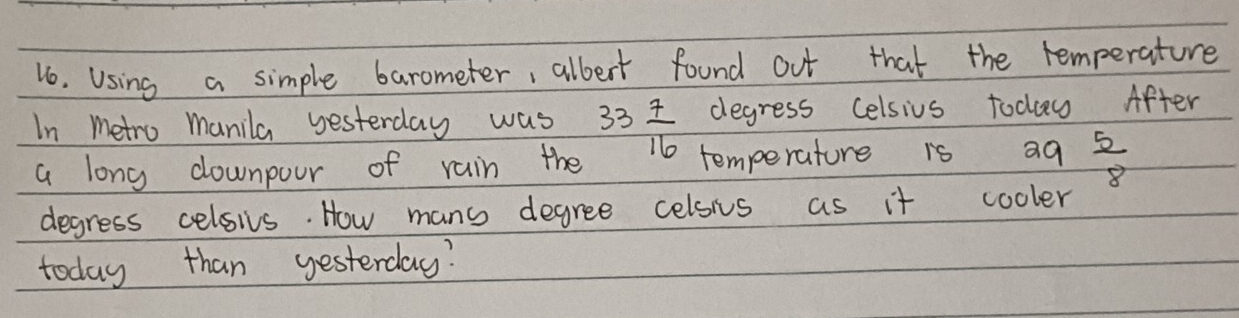 16. Using a simple barometer, albert found out that the temperature
In Metro Manila yesterday was 33 7/16 degress Celsius today After
a long downpour of rain the temperature is 29 5/8
degress celsius. How many degree celsius as it cooler
today than yesterday?